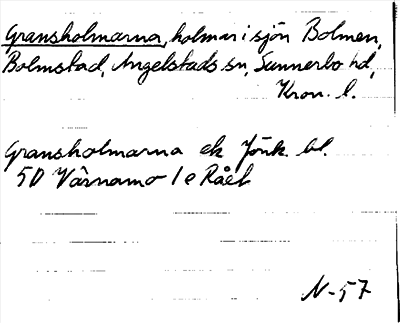 Gransholmarna, holmar i sjön Bolmen,
Bolmstad, Angelstads sn, Sunnerbo hd,
Kron. l.
Gransholmarna ek Jönk. bl.
5D Värnamo 1 e Råek
N-57